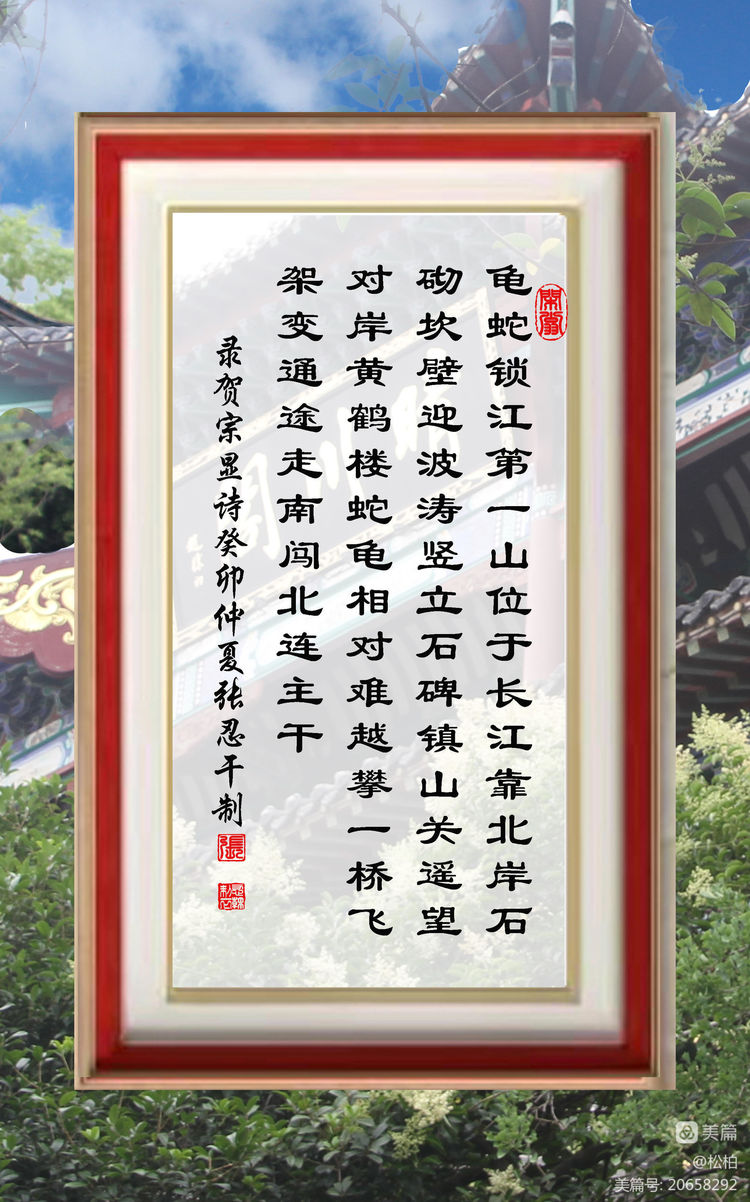 龟蛇锁江第一山位于长江靠北岸石
砌坎壁迎波涛竖立石碑镇山关遥望
对岸黄鹤楼蛇龟相对难越攀一桥飞
架变通途走南闯北连主干
录贺宗显诗癸卯仲夏张忍干制
張
晴川阁
美篇
@松柏
美篇号: 20658292